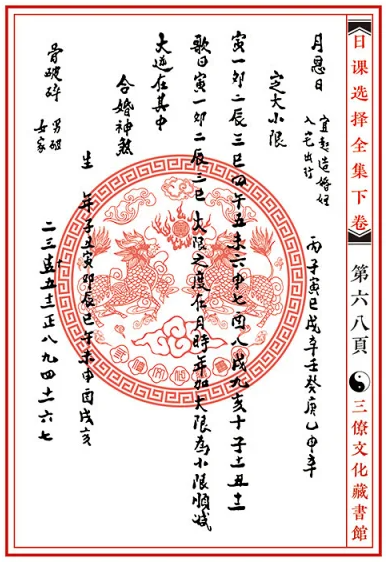 日课选择全集下卷
第六八頁
三僚文化藏書館
月恩日
宜起造婚姻
入宅出行
丙子寅巳戌辛壬癸庚乙申辛
定大小限
寅一卯二辰三巳四午五未六申七酉八戌九亥十子十一丑十二
歌曰寅一卯二辰三巳 大限之度在月時年加大限為小限順減
大逆在其中
合婚神煞
生 年子丑寅卯辰巳午未申酉戌亥
骨破碎
男破
女家
二三十五十二正八九四十一六七